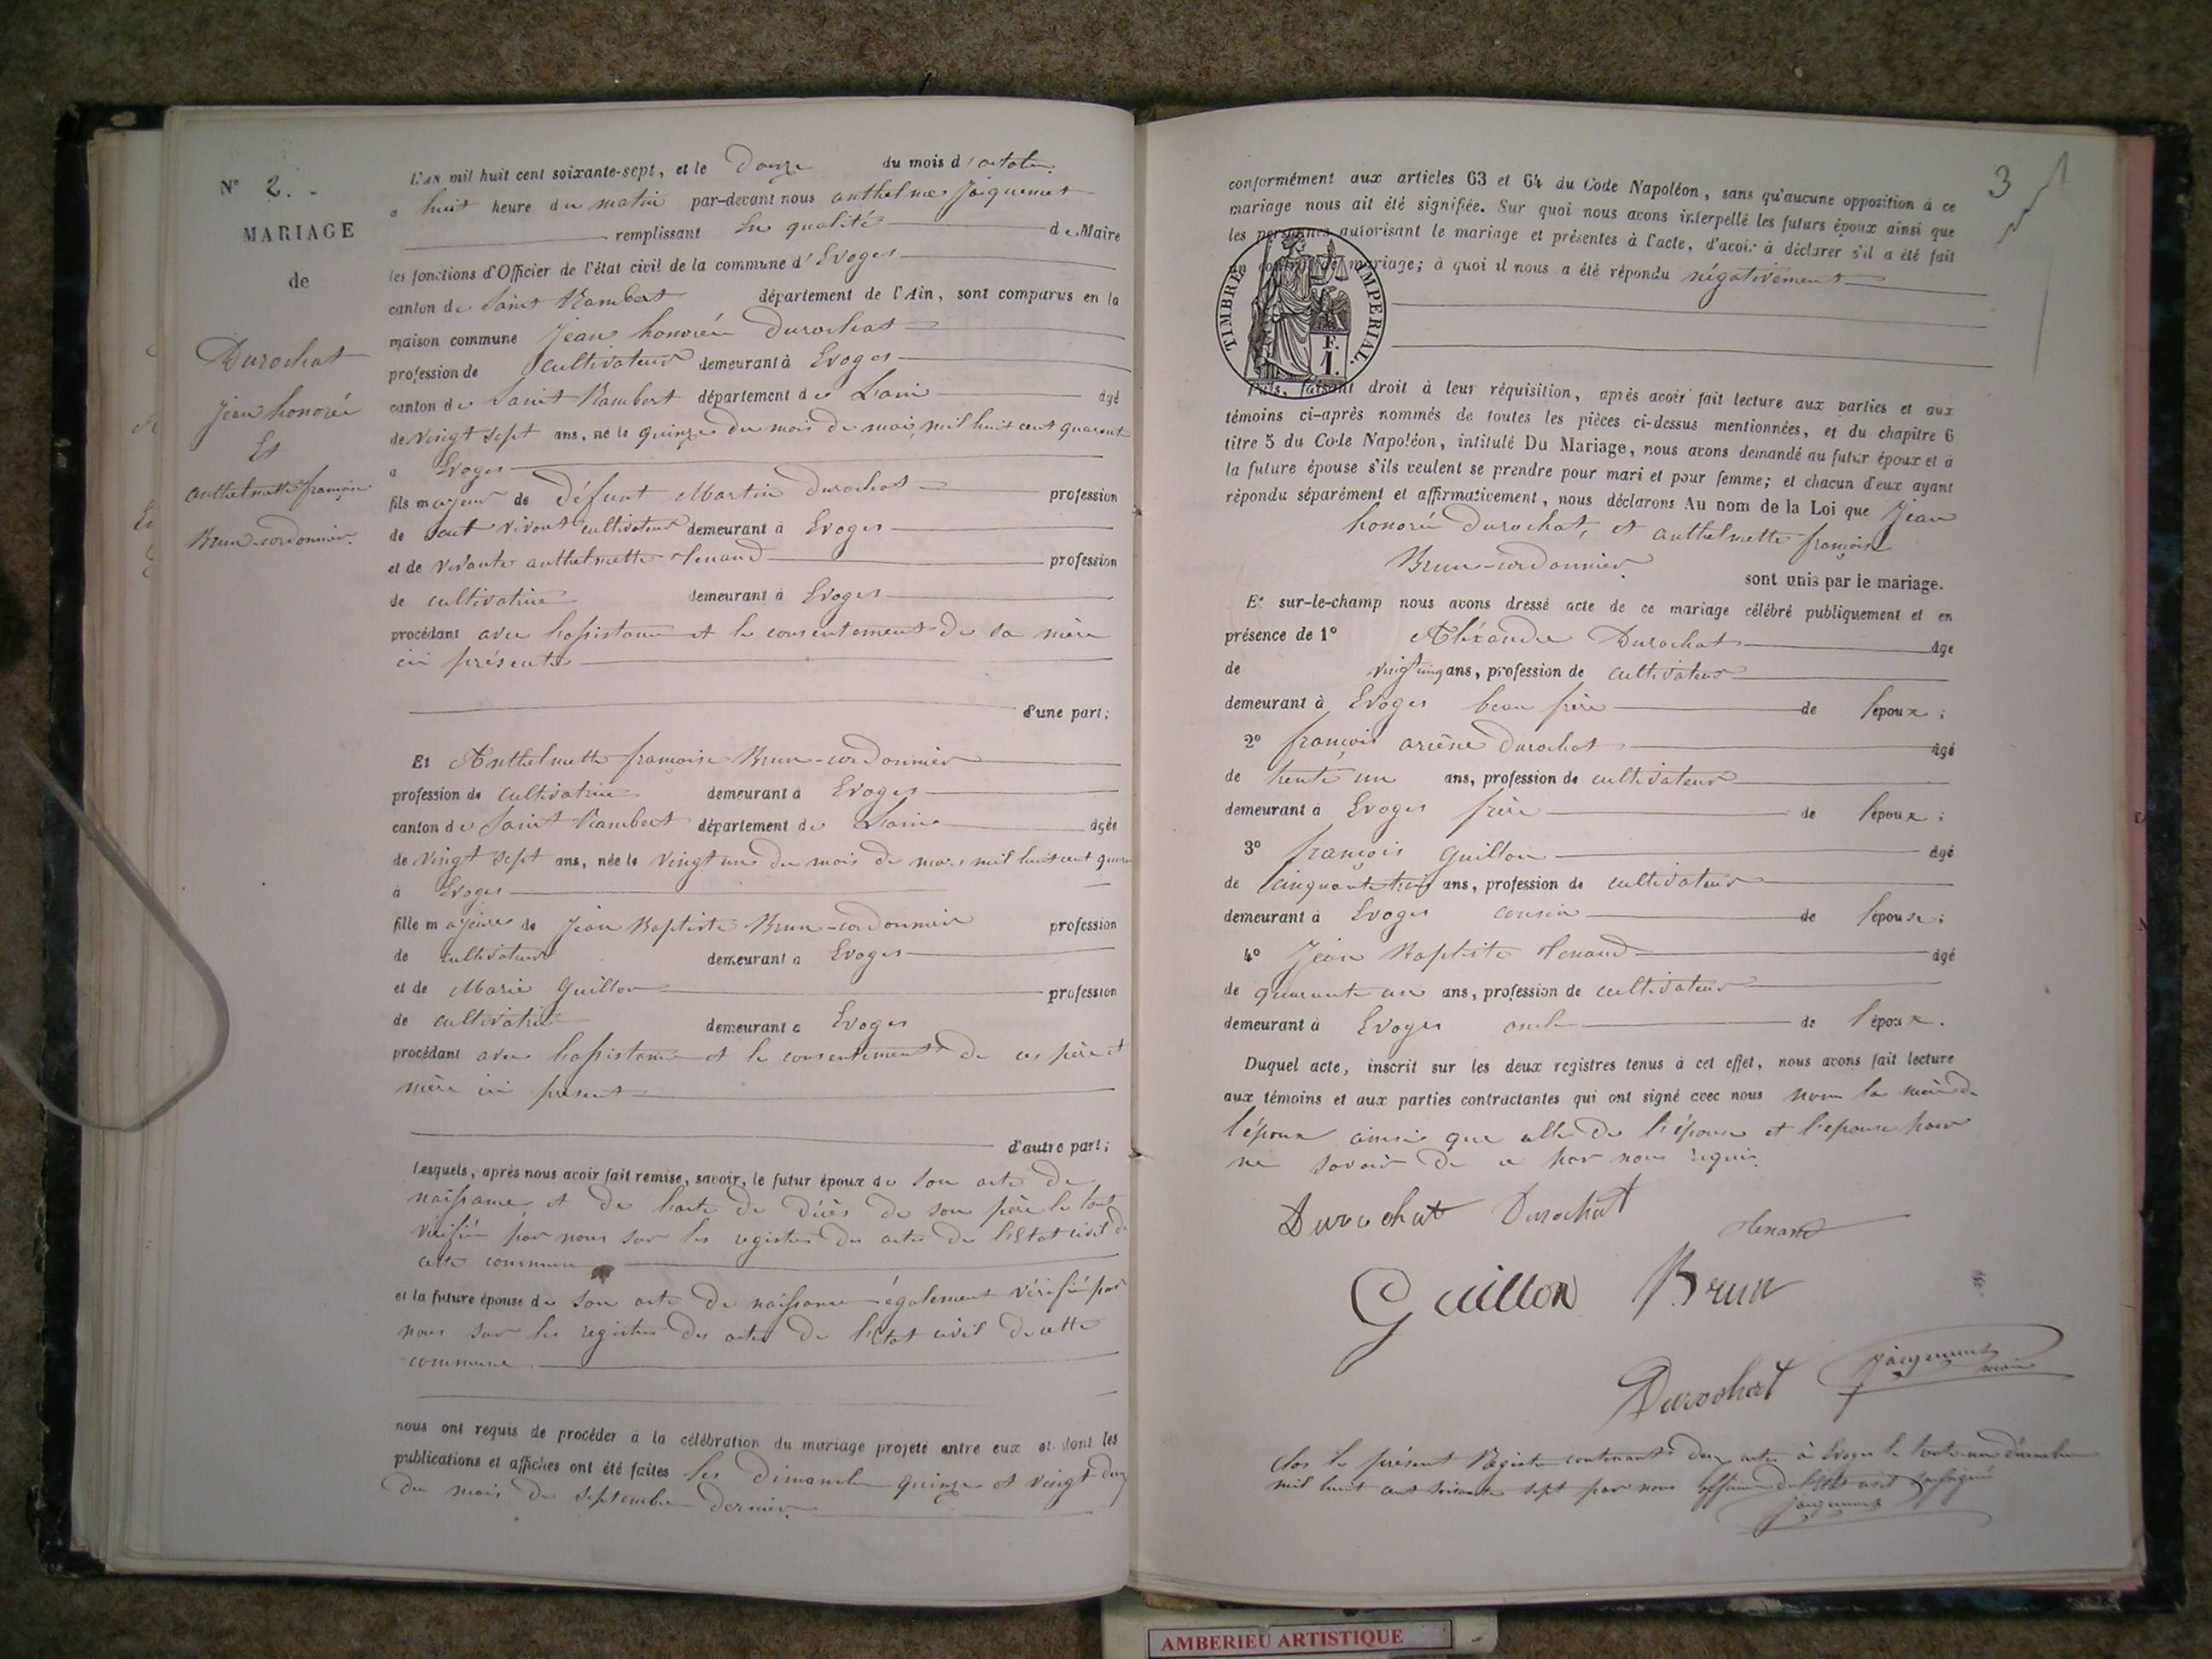 N° 2. -
MARIAGE
de
Durochat
Jean honoré
Et
anthelmette françoise
Brun-cordonnier.
L'AN mil huit cent soixante-sept, et le Douze du mois d'octobre
a huit heure du matin par-devant nous anthelme Jacquemet
remplissant En qualité de Maire
les fonctions d'Officier de l'état civil de la commune d'Evoges
canton de Saint Rambert département de l'Ain, sont comparus en la
maison commune Jean honoré Durochat
profession de Cultivateur demeurant à Evoges
canton de Saint Rambert département de L'ain âgé
de vingt sept ans, né le quinze du mois de mai mil huit cent quarante
a Evoges
fils majeur de Défunt Martin Durochat profession
de vivant cultivateur demeurant à Evoges
et de vivante anthelmette Henand profession
de cultivatrice demeurant à Evoges
procédant avec l'assistance et le consentement de sa mère
ici présente
d'une part;
Et Anthelmette françoise Brun-cordonnier
profession de cultivatrice demeurant à Evoges
canton de Saint Rambert département de L'ain âgée
de vingt sept ans, née le vingt un du mois de mars mil huit cent quara
à Evoges
fille majeure de Jean Baptiste Brun-cordonnier profession
de cultivateur demeurant a Evoges
et de Marie Guillon profession
de cultivatrice demeurant a Evoges
procédant avec l'assistance et le consentement de ces père et
mère ici présent
d'autre part;
Lesquels, après nous avoir fait remise, savoir, le futur époux de son acte de
naissance et de l'acte de décès de son père le tout
vérifié par nous sur les registres des actes de l'Etat civil de
cette commune
et la future épouse de son acte de naissance également vérifié par
nous sur les registres des actes de l'Etat civil de cette
commune
nous ont requis de procéder à la célébration du mariage projeté entre eux et dont les
publications et affiches ont été faites les Dimanche quinze et vingt deux
du mois de septembre dernier.
3
conformément aux articles 63 et 64 du Code Napoléon, sans qu'aucune opposition à ce
mariage nous ait été signifiée. Sur quoi nous avons interpellé les futurs époux ainsi que
les personnes autorisant le mariage et présentes à l'acte, d'avoir à déclarer s'il a été fait
un contrat de mariage; à quoi il nous a été répondu négativement
TIMBRE IMPERIAL.
F.
1.
Puis, faisant droit à leur réquisition, après avoir fait lecture aux parties et aux
témoins ci-après nommés de toutes les pièces ci-dessus mentionnées, et du chapitre 6
titre 5 du Code Napoléon, intitulé Du Mariage, nous avons demandé au futur époux et à
la future épouse s'ils veulent se prendre pour mari et pour femme; et chacun d'eux ayant
répondu séparément et affirmativement, nous déclarons Au nom de la Loi que Jean
honoré Durochat, et anthelmette françoise
Brun-cordonnier sont unis par le mariage.
Et sur-le-champ nous avons dressé acte de ce mariage célébré publiquement et en
présence de 1° Aléxandre Durochat âge
de ans, profession de cultivateur
demeurant à Evoges beau frère de l'époux;
2° françois arsène Durochat âgé
de trente un ans, profession de cultivateur
demeurant à Evoges frère de l'époux;
3° françois Guillon âgé
de cinquante trois ans, profession de cultivateur
demeurant à Evoges cousin de l'épouse;
4° Jean Baptiste Henand âgé
de quarante un ans, profession de cultivateur
demeurant à Evoges oncle de l'époux.
Duquel acte, inscrit sur les deux registres tenus à cet effet, nous avons fait lecture
aux témoins et aux parties contractantes qui ont signé avec nous non la mère de
l'époux ainsi que celle de l'épouse et l'épouse pour
ne savoir de ce par nous requis.
Durochat Durochat Henand
Guillon Brun
Durochat Jacquemet
maire
Clos le présent Registre contenant deux actes à Evoges le trente un décembre
mil huit cent soixante sept par nous officier de l'Etat civil soussigné
Jacquemet
AMBERIEU ARTISTIQUE